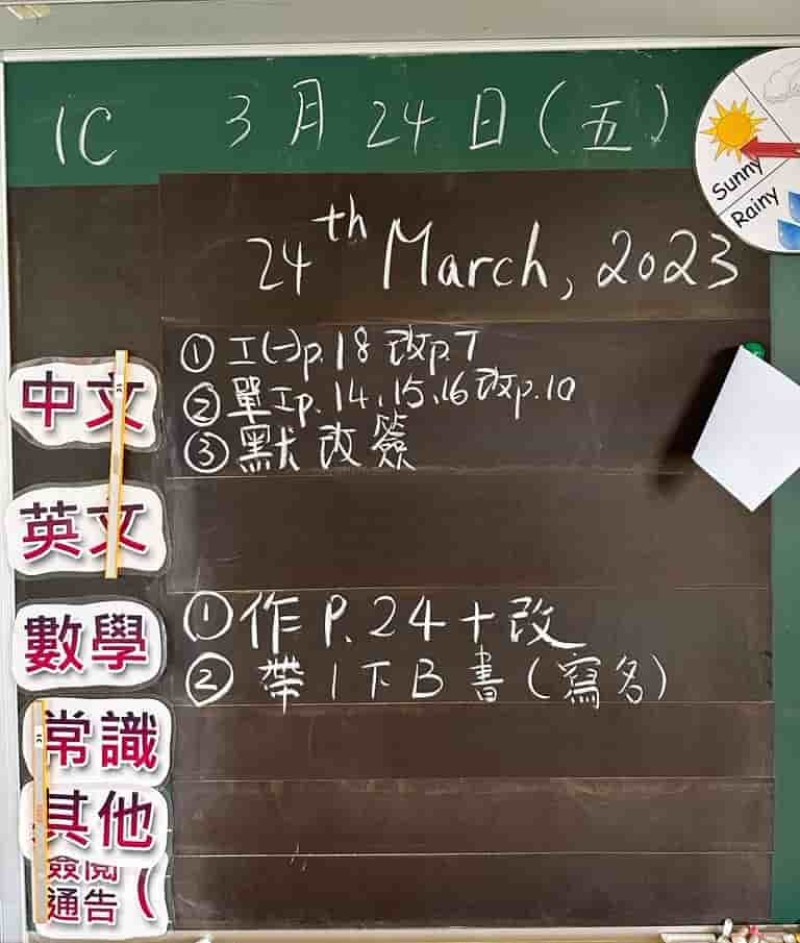 1C 3月24日(五)
Sunny
Rainy
24th March, 2023
中文
①工(一)p.18 改p.7
②單工p.14、15、16改p.10
③默改簽
英文
數學
①作P.24+改
②帶1下B書(寫名)
常識
其他
簽閱
通告(